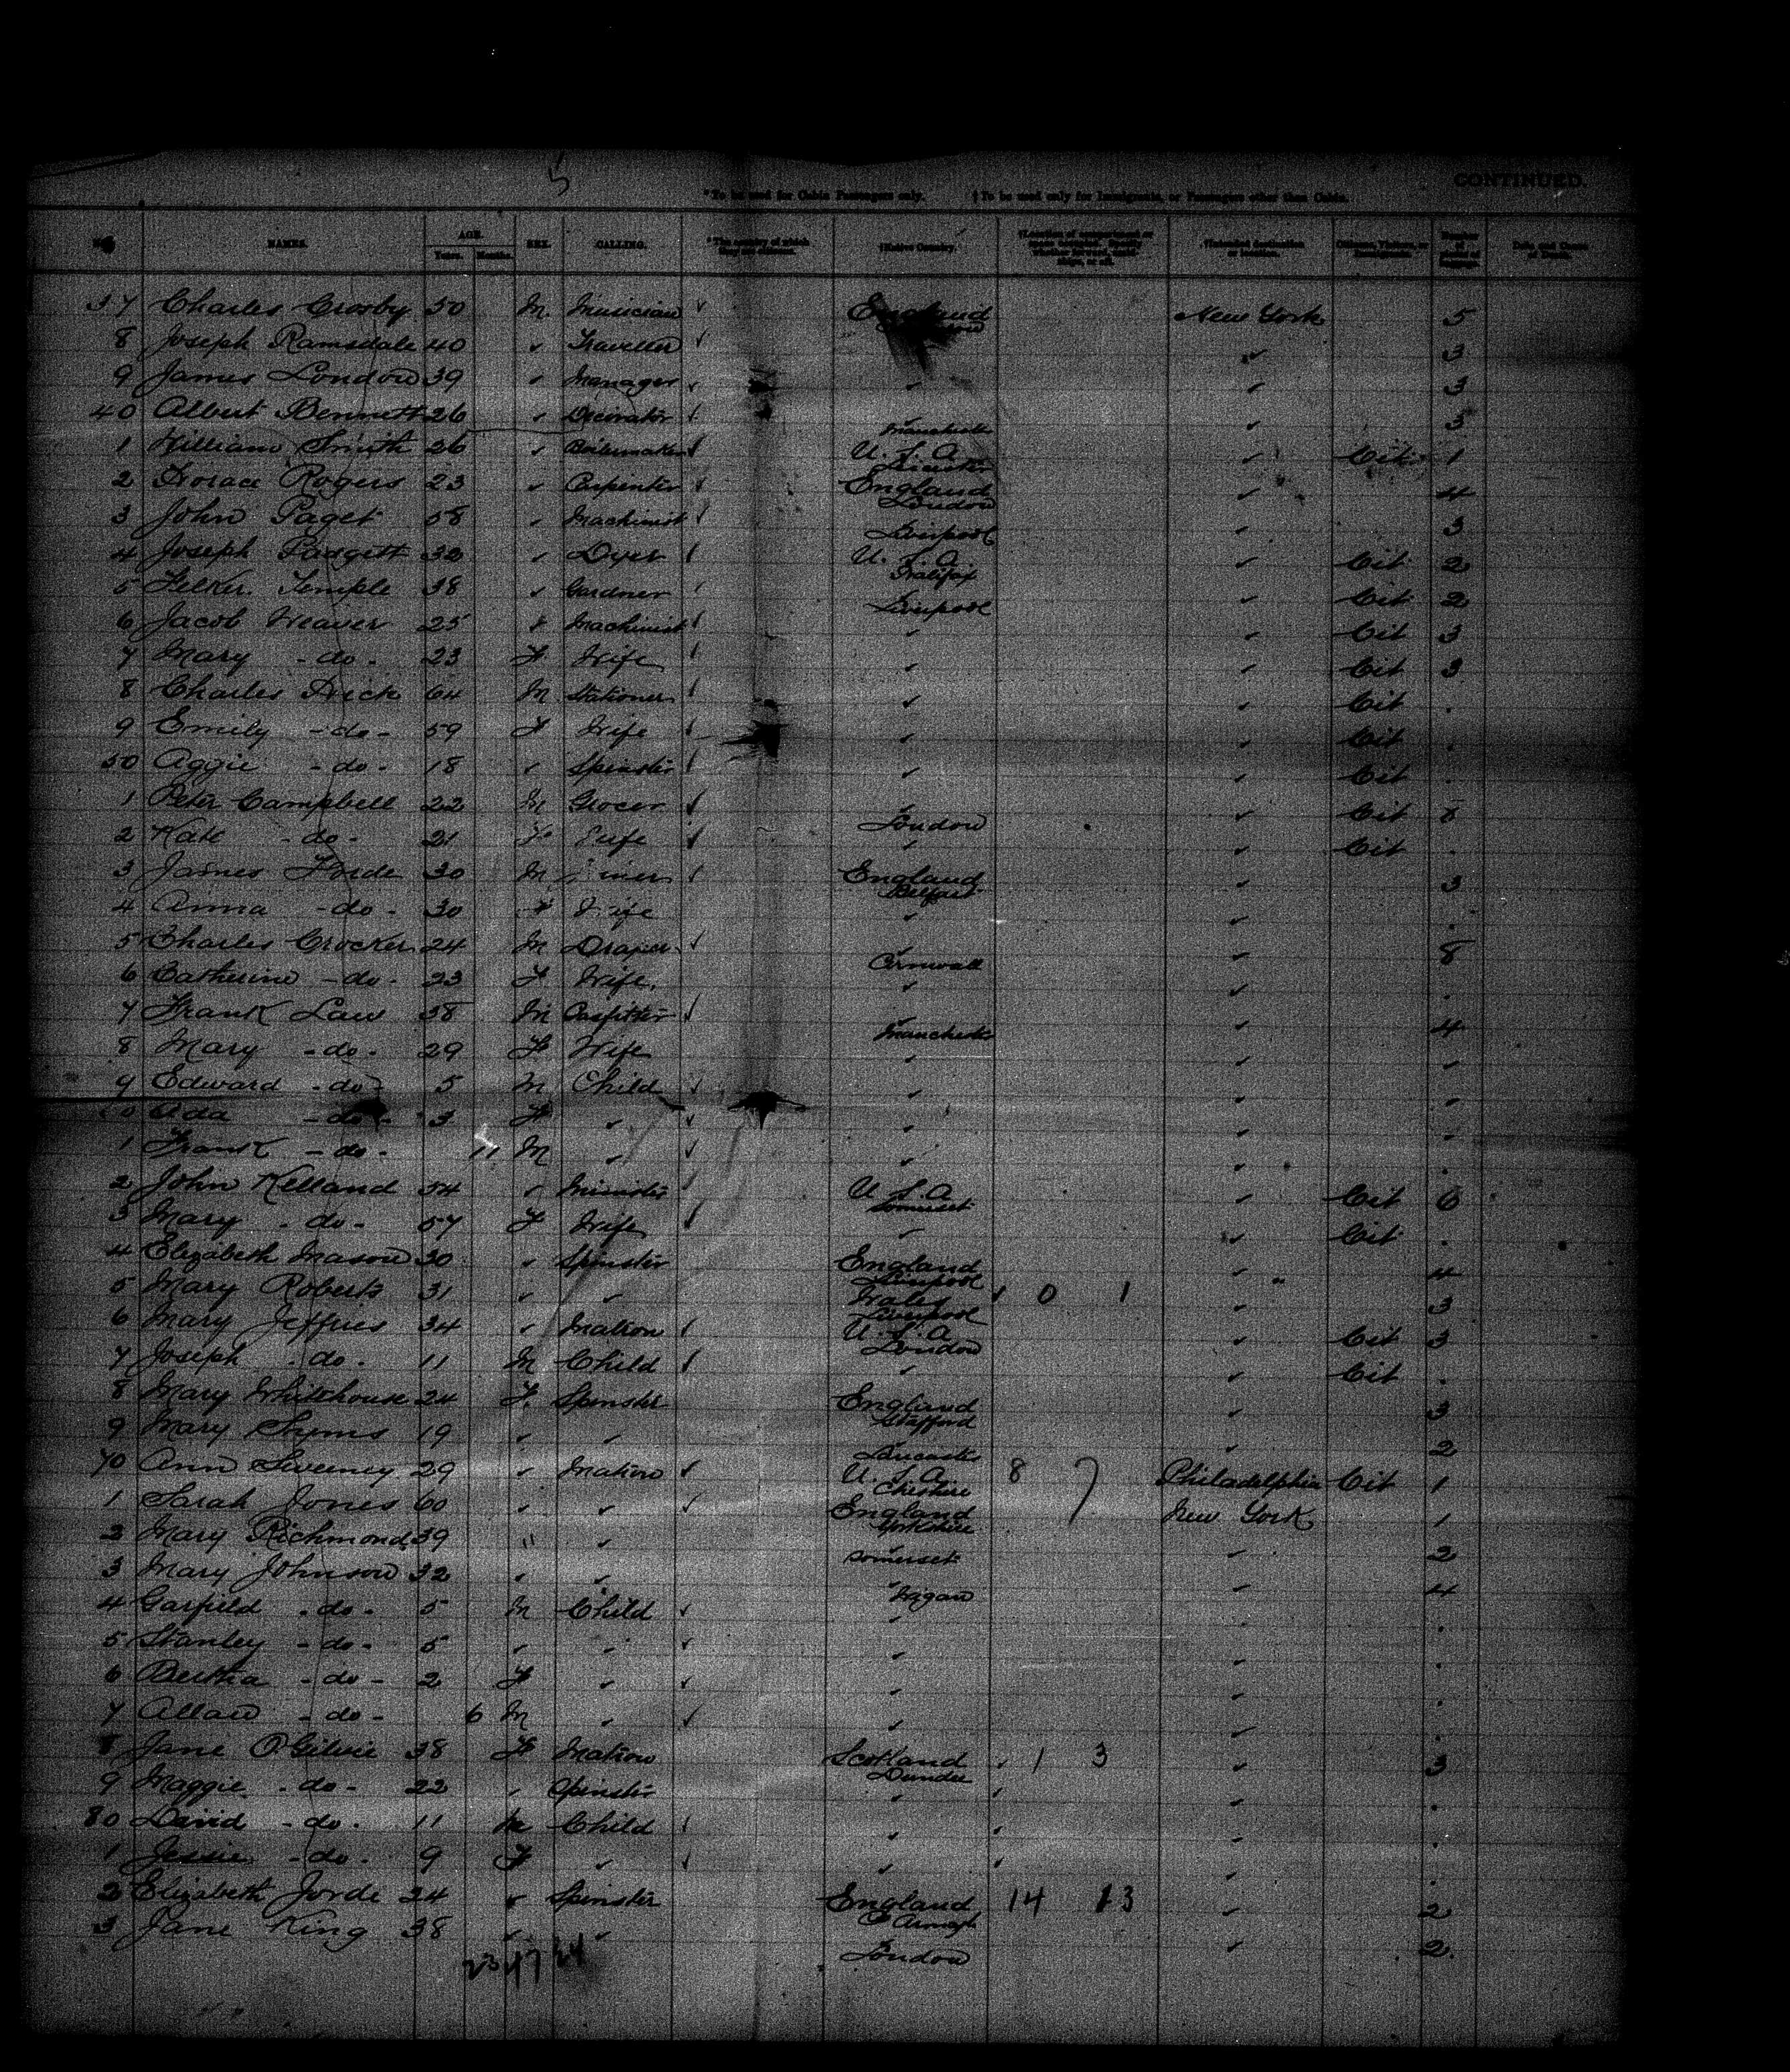 5
CONTINUED.
*To be used for Cabin Passengers only. †To be used only for Immigrants, or Passengers other than Cabin.
No. NAMES. AGE. Years. Months. SEX. CALLING. *The country of which they are citizens. †Native Country. †Intended destination or location. Citizens, Visitors, or Immigrants. Number of pieces of baggage. Date and Cause of Death.
37 Charles Crosby 50 M. Musician ✓ England New York 5
8 Joseph Ramsdale 40 " Traveller ✓ " 3
9 James London 39 " Manager ✓ " " 3
40 Albert Bennett 26 " Decorator ✓ " Manchester " 3
1 William Smith 26 " Boilermaker ✓ U.S.A. Leicester " Cit. 1
2 Horace Rogers 23 " Carpenter ✓ England London " 4
3 John Paget 58 " Machinist ✓ " Liverpool " 3
4 Joseph Padgett 32 " Dyer ✓ U.S.A. Halifax " Cit 2
5 Temple 38 " Gardner ✓ " Liverpool " Cit 2
6 Jacob Weaver 25 " Machinist ✓ " " Cit 3
7 Mary - do - 23 F. Wife ✓ " " Cit 3
8 Charles 64 M Stationer ✓ " " Cit .
9 Emily - do - 59 F Wife ✓ " " Cit .
50 Aggie - do - 18 " Spinster ✓ " " Cit .
1 Peter Campbell 22 M Grocer ✓ " London " Cit 8
2 Kate - do - 21 F Wife ✓ " " Cit .
3 James Forde 30 M ✓ England Belfast " 3
4 Anna - do - 30 F Wife " " .
5 Charles Crocker 24 M Draper ✓ " Cornwall " 8
6 Catherine - do - 23 F Wife. " " .
7 Frank Law 38 M Gasfitter ✓ " Manchester " 4
8 Mary - do - 29 F Wife " " "
9 Edward - do - 5 M Child ✓ " " "
60 Ada - do - 3 F " ✓ " " "
1 Frank - do - 11 M " ✓ " " .
2 John Kelland 54 " Minister ✓ U.S.A. Somerset " Cit 6
3 Mary - do - 57 F Wife ✓ " " Cit .
4 Elizabeth Mason 30 " Spinster England Liverpool " 4
5 Mary Roberts 31 " " Wales Liverpool ✓ 0 1 " 3
6 Mary Jeffries 34 " Matron ✓ U.S.A. London " Cit 3
7 Joseph - do - 11 M Child ✓ " " Cit .
8 Mary Whitehouse 24 F. Spinster England Stafford " 3
9 Mary Syms 19 " " " Lancaster " 2
70 Ann Sweeney 29 " Matron ✓ U.S.A. Cheshire 8 7 Philadelphia Cit 1
1 Sarah Jones 60 " " ✓ England Yorkshire New York 1
2 Mary Richmond 39 " " " Somerset " 2
3 Mary Johnson 32 " " " Wigan " 4
4 Garfield - do - 5 M Child ✓ " " .
5 Stanley - do - 5 " " ✓ " " .
6 Bertha - do - 2 F " ✓ " " .
7 Allan - do - 6 M " ✓ " " .
8 Jane O'Gilvie 38 F Matron Scotland Dundee ✓ 1 3 " 3
9 Maggie - do - 22 " Spinster " ✓ " .
80 David - do - 11 M Child ✓ " ✓ " .
1 Jessie - do - 9 F " ✓ " ✓ " .
2 Elizabeth Jorde 24 " Spinster England Co Armagh 14 13 " 2
3 Jane King 38 " " " London " 2.
23 47 24